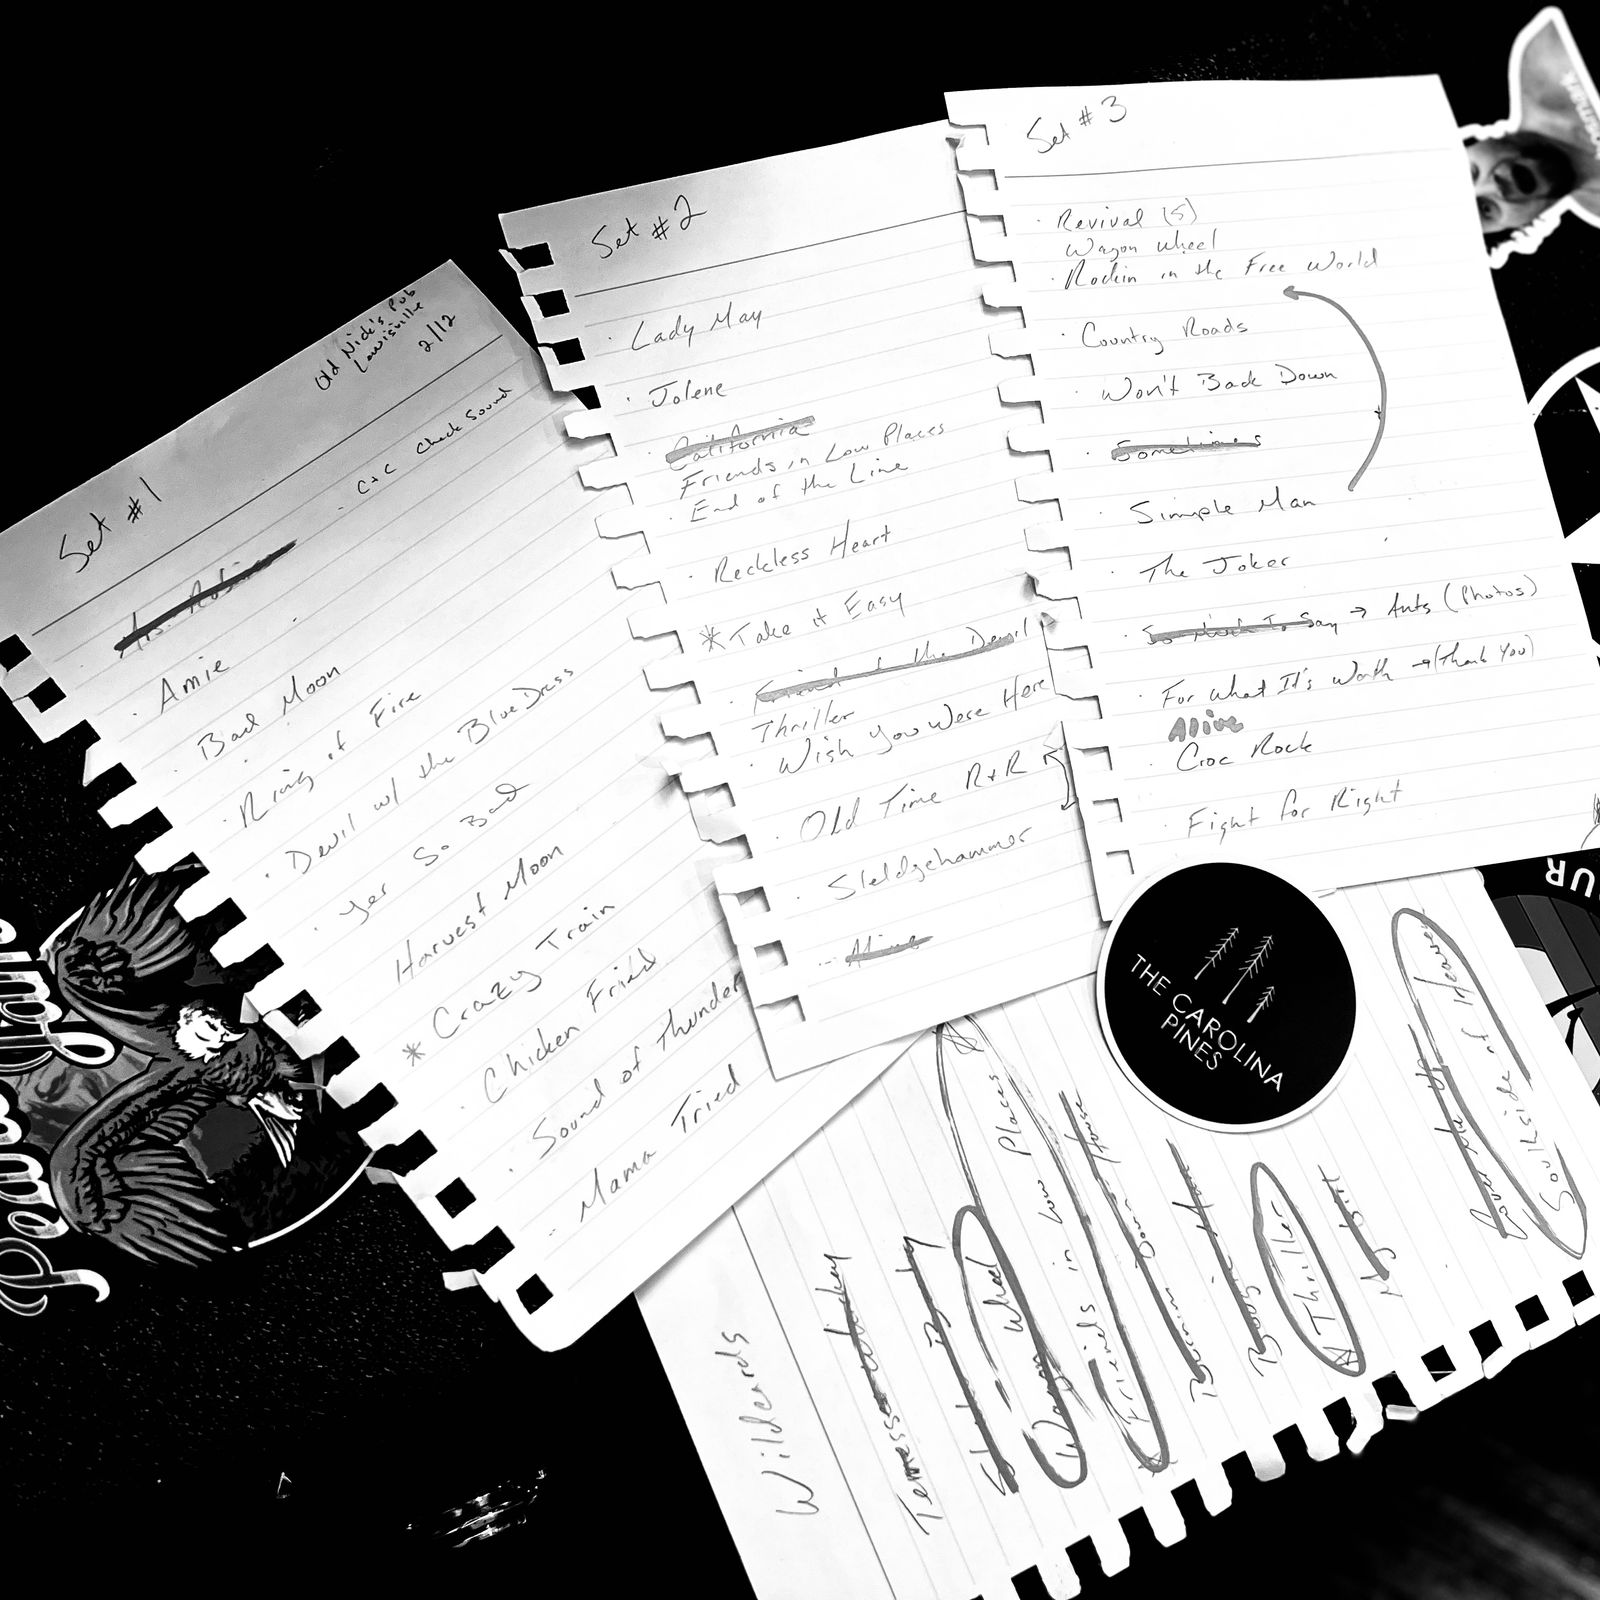 Set #1
Old Nick's Pub
Lewisville
2/12
· C+C Check Sound
· Amie
· Bad Moon
· Ring of Fire
· Devil w/ the Blue Dress
· Yer So Bad
Harvest Moon
* Crazy Train
· Chicken Fried
· Sound of Thunder
· Mama Tried
Set #2
· Lady May
· Jolene
· California
Friends in Low Places
· End of the Line
· Reckless Heart
* Take it Easy
· Friend of the Devil
Thriller
· Wish You Were Here
· Old Time R+R
· Sleldgehammer
· Alive
Set #3
· Revival (5)
Wagon Wheel
· Rockin in the Free World
· Country Roads
· Won't Back Down
· Sometimes
· Simple Man
· The Joker
· So Much To Say → Ants (Photos)
· For What It's Worth → (Thank You)
Alive
· Croc Rock
· Fight for Right
Wildcards
Wagon Wheel
Friends in Low Places
Burnin Down House
Boogie Shoes
* Thriller
My Shirt
Soulside of Heaven
THE CAROLINA
PINES